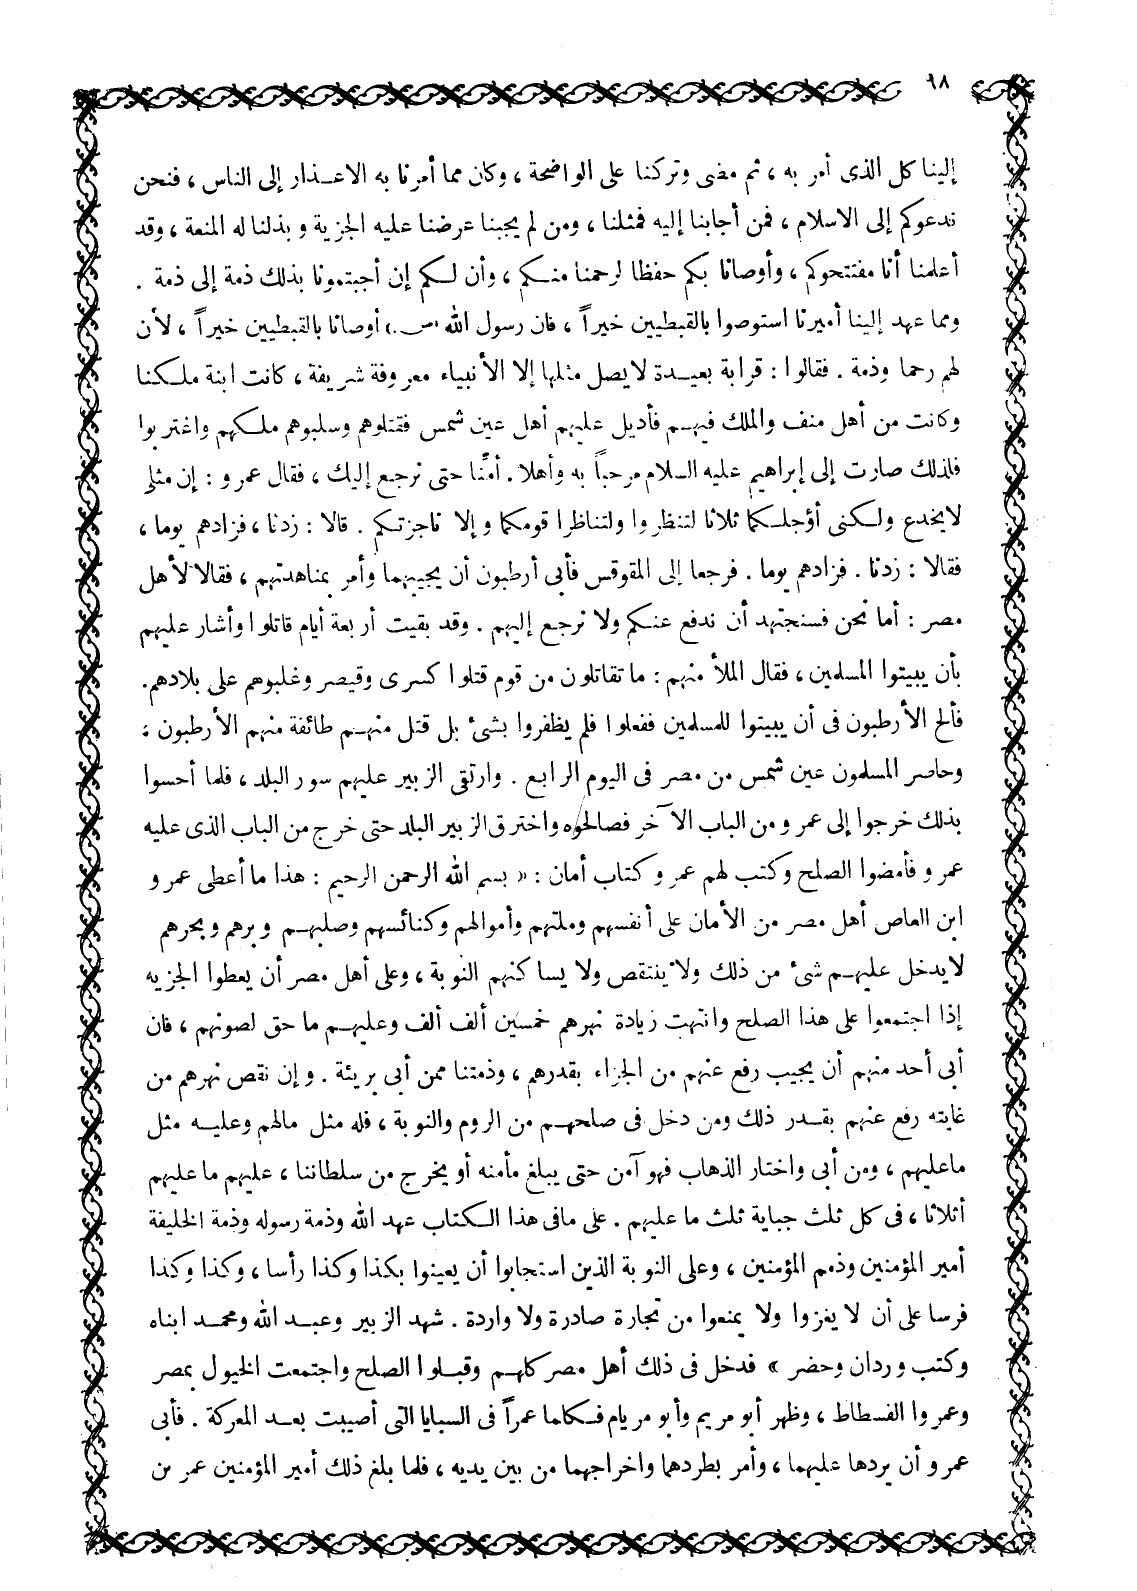 ٩٨
إلينا كل الذى أمر به ، ثم مضى وتركنا على الواضحة ، وكان مما أمرنا به الاعـذار إلى الناس ، فنحن
ندعوكم إلى الاسلام ، فمن أجابنا إليه فمثلنا ، ومن لم يجبنا عرضنا عليه الجزية و بذلنا له المنعة ، وقد
أعلمنا أنا مفتتحوكم ، وأوصانا بكم حفظا لرحمنا منـكم ، وأن لـكم إن أجبتمونا بذلك ذمة إلى ذمة .
ومما عهد إلينا أميرنا استوصوا بالقبطيين خيراً ، فان رسول الله (ص.) أوصانا بالقبطيين خيراً ، لأن
لهم رحما وذمة . فقالوا : قرابة بعيـدة لايصل مثلها إلا الأنبياء معروفة شريفة ، كانت ابنة ملـكنا
وكانت من أهل منف والملك فيهـم فأديل عليهم أهل عين شمس فقتلوهم وسلبوهم ملـكهم واغتربوا
فلذلك صارت إلى إبراهيم عليه السلام مرحباً به وأهلا . أمنّا حتى نرجع إليك ، فقال عمرو : إن مثلى
لايخدع ولـكنى أؤجلـكما ثلاثا لتنظروا ولتناظرا قومكما و إلا ناجزتـكم . قالا : زدنا ، فزادهم يوما ،
فقالا : زدنا . فزادهم يوما . فرجعا إلى المقوقس فأبى أرطبون أن يجيبهما وأمر بمناهدتهم ، فقالا لأهل
مصر : أما نحن فسنجتهد أن ندفع عنـكم ولا نرجع إليهم . وقد بقيت أربعة أيام قاتلوا وأشار عليهم
بأن يبيتوا المسلمين ، فقال الملأ منهم : ما تقاتلون من قوم قتلوا كسرى وقيصر وغلبوهم على بلادهم.
فألح الأرطبون فى أن يبيتوا للمسلمين ففعلوا فلم يظفروا بشئ بل قتل منهـم طائفة منهم الأرطبون ؛
وحاصر المسلمون عين شمس من مصر فى اليوم الرابع . وارتقى الزبير عليهم سور البلد ، فلما أحسوا
بذلك خرجوا إلى عمرو من الباب الآخر فصالحوه واخترق الزبير البلد حتى خرج من الباب الذى عليه
عمرو فأمضوا الصلح وكتب لهم عمرو كتاب أمان : « بسم الله الرحمن الرحيم : هذا ما أعطى عمرو
ابن العاص أهل مصر من الأمان على أنفسهم وملتهم وأموالهم وكنائسهم وصلبهـم وبرهم وبحرهم
لايدخل عليهـم شئ من ذلك ولا ينتقص ولا يساكنهم النوبة ، وعلى أهل مصر أن يعطوا الجزيه
إذا اجتمعوا على هذا الصلح وانتهت زيادة نهرهم خمسين ألف ألف وعليهـم ما حق لصونهم ، فان
أبى أحد منهم أن يجيب رفع عنهم من الجزاء بقدرهم ، وذمتنا ممن أبى بريئة . وإن نقص نهرهم من
غايته رفع عنهم بقـدر ذلك ومن دخل فى صلحهـم من الروم والنوبة ، فله مثل مالهم وعليـه مثل
ماعليهم ، ومن أبى واختار الذهاب فهو آمن حتى يبلغ مأمنه أو يخرج من سلطاننا ، عليهم ما عليهم
أثلاثا ، فى كل ثلث جباية ثلث ما عليهم . على مافى هذا الـكتاب عهد الله وذمة رسوله وذمة الخليفة
أمير المؤمنين وذمم المؤمنين ، وعلى النوبة الذين استجابوا أن يعينوا بكذا وكذا رأسا ، وكذا وكذا
فرسا على أن لا يغزوا ولا يمنعوا من تجارة صادرة ولا واردة . شهد الزبير وعبـد الله ومحمـد ابناه
وكتب وردان وحضر » فدخل فى ذلك أهل مصر كلهـم وقبـلوا الصلح واجتمعت الخيول بمصر
وعمروا الفسطاط ، وظهر أبو مريم وأبو مريام فـكلما عمراً فى السبايا التى أصيبت بعـد المعركة . فأبى
عمرو أن يردها عليهما ، وأمر بطردهما واخراجهما من بين يديه ، فلما بلغ ذلك أمير المؤمنين عمر بن